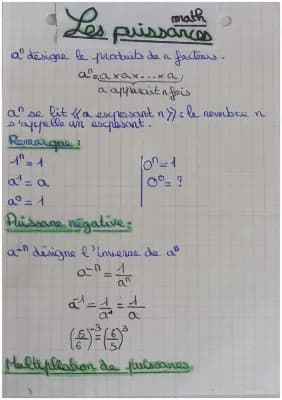 math
Les puissances
aⁿ désigne le produits de n facteurs.
aⁿ = a x a x ... x a
a apparait n fois
aⁿ se lit « a exposant n » : le nombre n
s'appelle un exposant.
Remarque :
1ⁿ = 1
0ⁿ = 1
a¹ = a
0⁰ = ?
a⁰ = 1
Puissane négative :
a⁻ⁿ désigne l'inverse de aⁿ
a⁻ⁿ = 1/aⁿ
a⁻¹ = 1/a¹ = 1/a
(5/6)⁻³ = (6/5)³
Multiplication de puissances